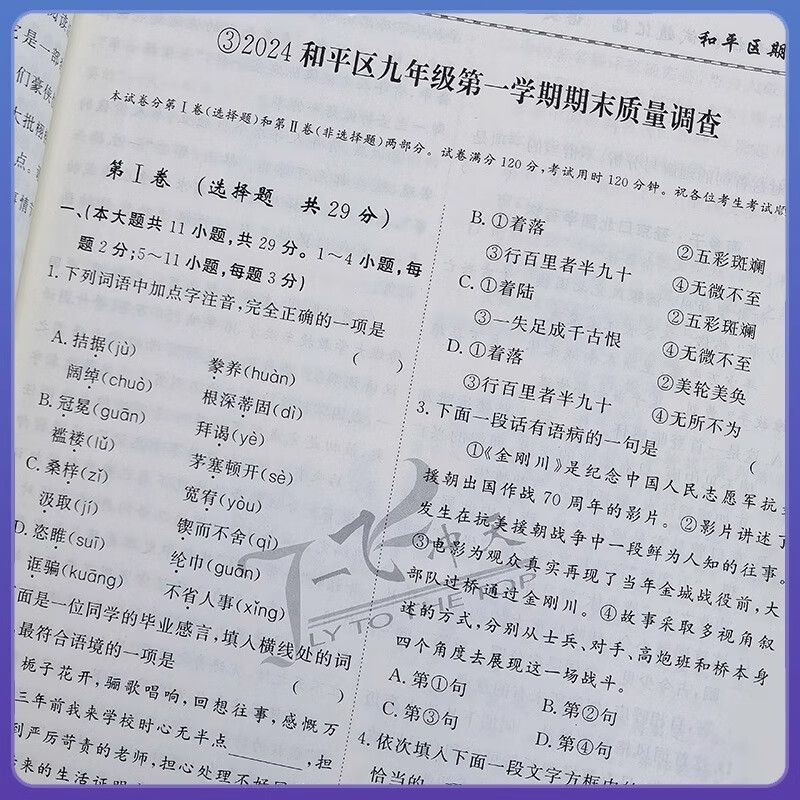 和平区期
③2024 和平区九年级第一学期期末质量调查
本试卷分第Ⅰ卷(选择题)和第Ⅱ卷(非选择题)两部分。试卷满分120分,考试用时120分钟。祝各位考生考试顺
第Ⅰ卷 (选择题 共29分)
一、(本大题共11小题,共29分。1~4小题,每
题2分;5~11小题,每题3分)
1.下列词语中加点字注音,完全正确的一项是
( )
A.拮据(jù) 豢养(huàn)
阔绰(chuò) 根深蒂固(dì)
B.冠冕(guān) 拜谒(yè)
褴褛(lǚ) 茅塞顿开(sè)
C.桑梓(zǐ) 宽宥(yòu)
汲取(jí) 锲而不舍(qì)
D.恣睢(suī) 纶巾(guān)
诓骗(kuāng) 不省人事(xǐng)
面是一位同学的毕业感言,填入横线处的词
最符合语境的一项是
( )
栀子花开,骊歌唱响,回想往事,感慨万
三年前我来学校时心无半点______,担
到严厉苛责的老师,担心处理不好同
来的生活证明
B.①着落 ②五彩斑斓
③行百里者半九十 ④无微不至
C.①着陆 ②五彩斑斓
③一失足成千古恨 ④无微不至
D.①着落 ②美轮美奂
③行百里者半九十 ④无所不为
3.下面一段话有语病的一句是 (
①《金刚川》是纪念中国人民志愿军抗
援朝出国作战70周年的影片。②影片讲述了
发生在抗美援朝战争中一段鲜为人知的往事。
③电影为观众真实再现了当年金城战役前,大
部队过桥通过金刚川。④故事采取多视角叙
述的方式,分别从士兵、对手、高炮班和桥本身
四个角度去展现这一场战斗。
A.第①句 B.第②句
C.第③句 D.第④句
4.依次填入下面一段文字方框中的
恰当的
一飞冲天
FLY TO THE TOP